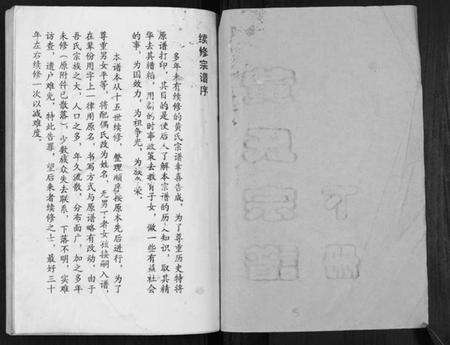 续修宗谱序
多年未有续修的黄氏宗谱幸喜告成，为了尊重历史特将
原谱打印，其目的是使后人了解本宗谱的历史知识，取其精
华去其糟粕，用新的时事政策去教育子女，做一些有益社会
的事，为国效力，为祖争光，为族
本谱本从十五世续修，整理顺序按原本先后进行，为了
尊重男女平等，将配偶氏改为姓名，无男丁者女
在辈份用字上一律用原名，书写方式与原谱略有改动，由于
吾氏宗族之大，人口之多，年久流散，分布面广，加之多年
未修（原附件已散落），少数族众失去联系，下落不明，实难
访查，遗户难免，特此告罪，望后来者续修之，最好三十
年左右续修一次以减难度。